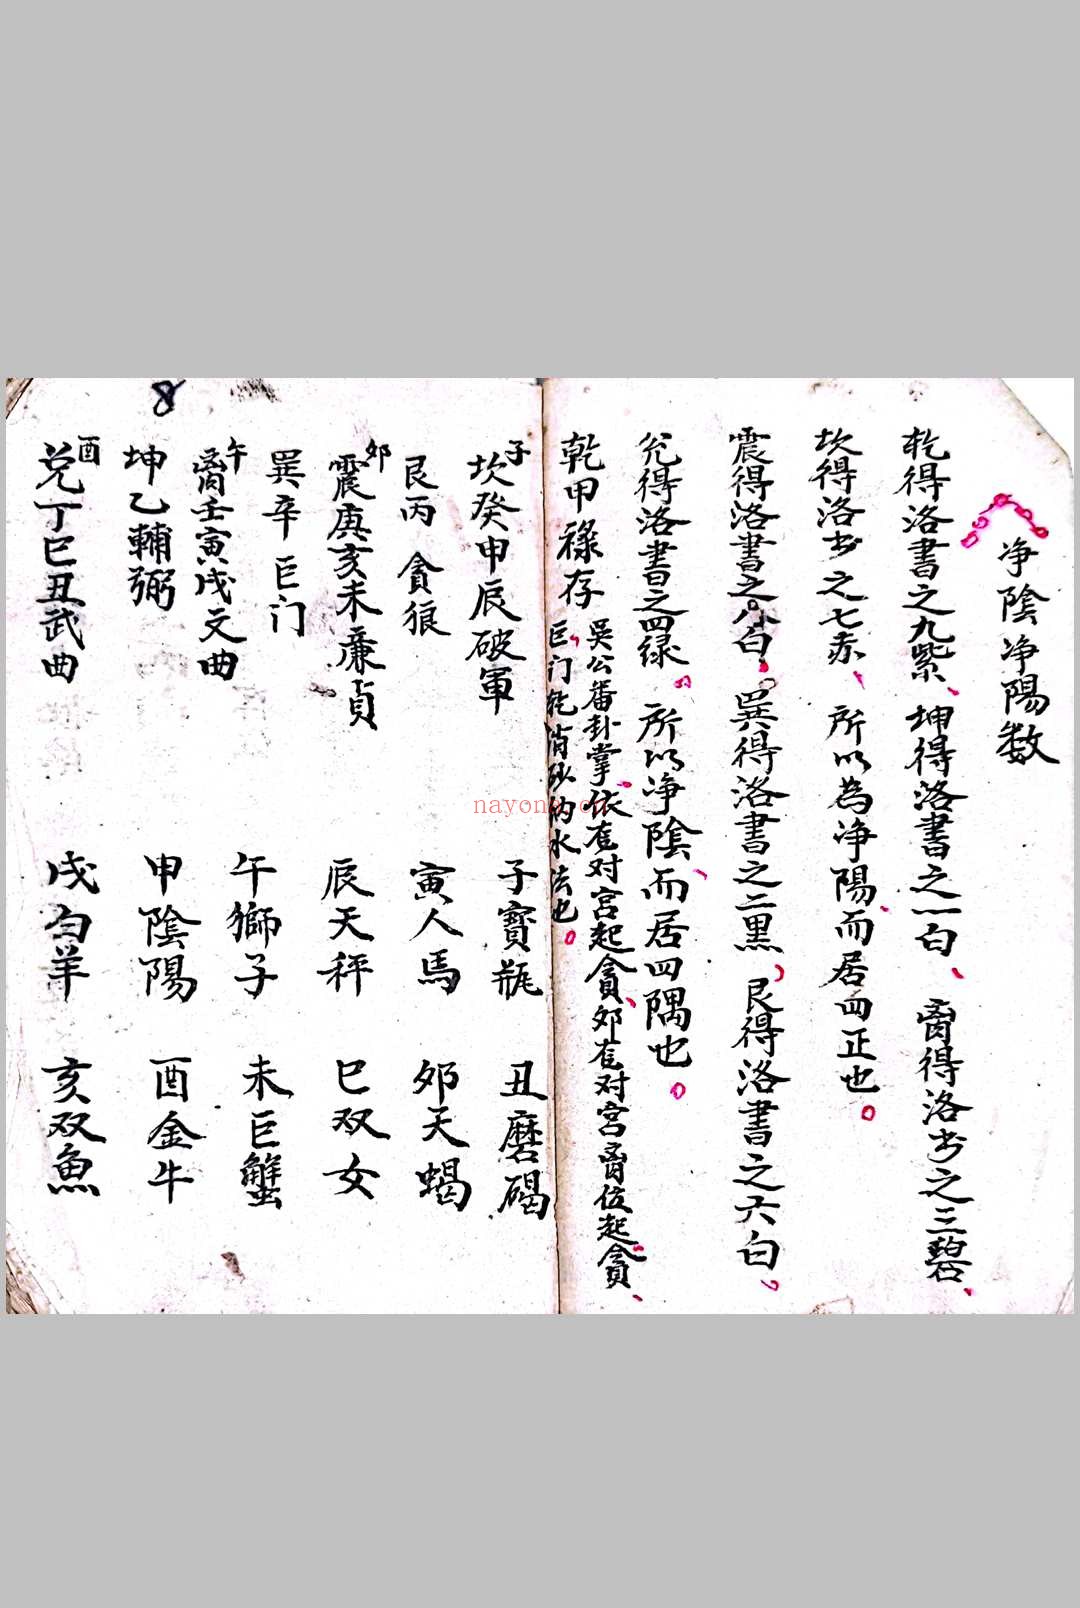 净陰净陽数
乾得洛書之九紫、坤得洛書之一白、离得洛书之三碧、
坎得洛书之七赤、所以為净陽、而居四正也。
震得洛書之八白、巽得洛書之二黒、艮得洛書之六白。
兑得洛書之四绿。所以净陰、而居四隅也。
乾甲祿存
吳公番卦掌、依 对宫起貪、卯 对宫离位起貪、
巨门乾消砂纳水法也。
子
坎癸申辰破軍
子寳瓶
丑磨碣
艮丙貪狼
寅人馬
卯天蝎
卯
震庚亥未廉貞
辰天秤
巳双女
巽辛巨门
午獅子
未巨蟹
午
离壬寅戌文曲
坤乙輔弼
申陰陽
酉金牛
酉
兑丁巳丑武曲
戌白羊
亥双魚
8
nayona.cn